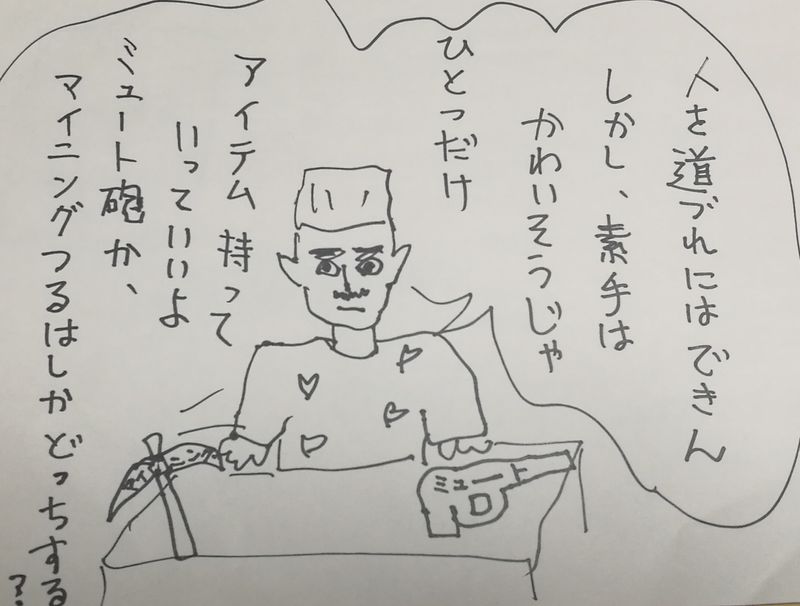 人を道づれにはできん
しかし、素手は
かわいそうじゃ
ひとつだけ
アイテム持って
いっていいよ
ミュート砲か、
マイニングつるはしかどっちする?
マイニング
ミュート